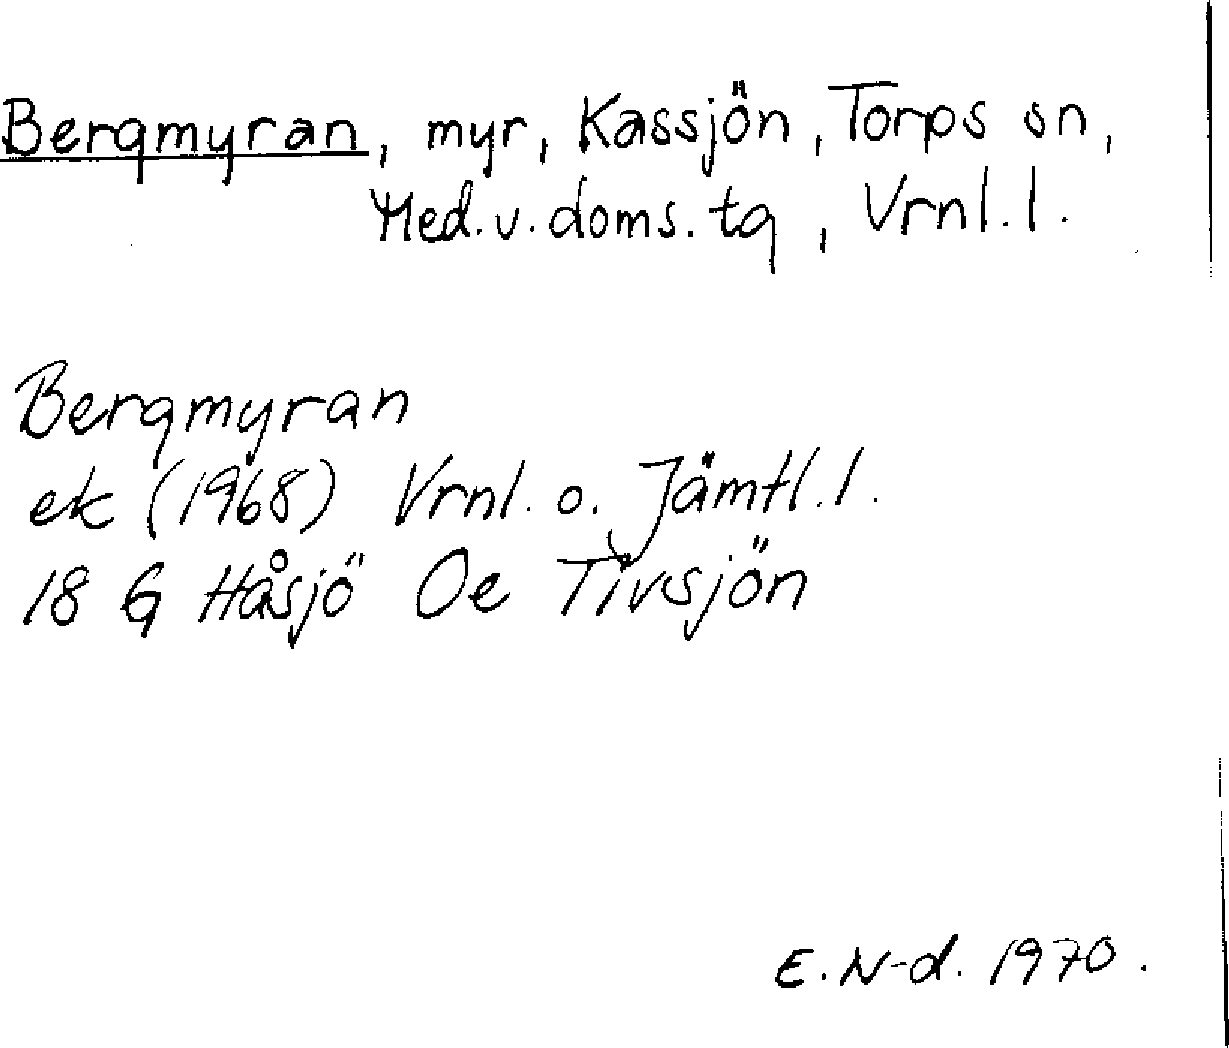 Bergmyran, myr, Kassjön, Torps sn,
Med. v. doms. tg, Vrnl. l.
Bergmyran
ek (1968) Vrnl. o. Jämtl. l.
18 G Håsjö Oe Tivsjön
E. N-d. 1970.